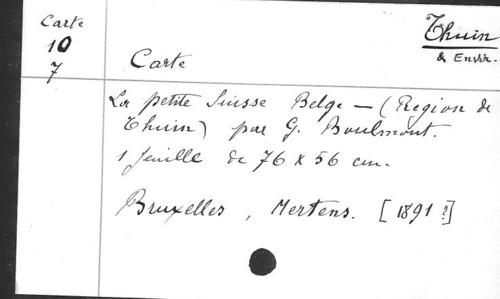 Carte
10
7
Thuin
& Envir.
Carte
La petite Suisse Belge — (Region de
Thuin) par G. Boulmont.
1 feuille de 76 x 56 cm.
Bruxelles, Mertens. [1891?]